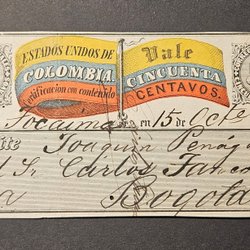 ESTADOS UNIDOS DE
COLOMBIA.
Certificacion con contenido
Vale
CINCUENTA
CENTAVOS.
Tocaima en 15 de Octe
Joaquin
Sr. Carlos
Bogotá